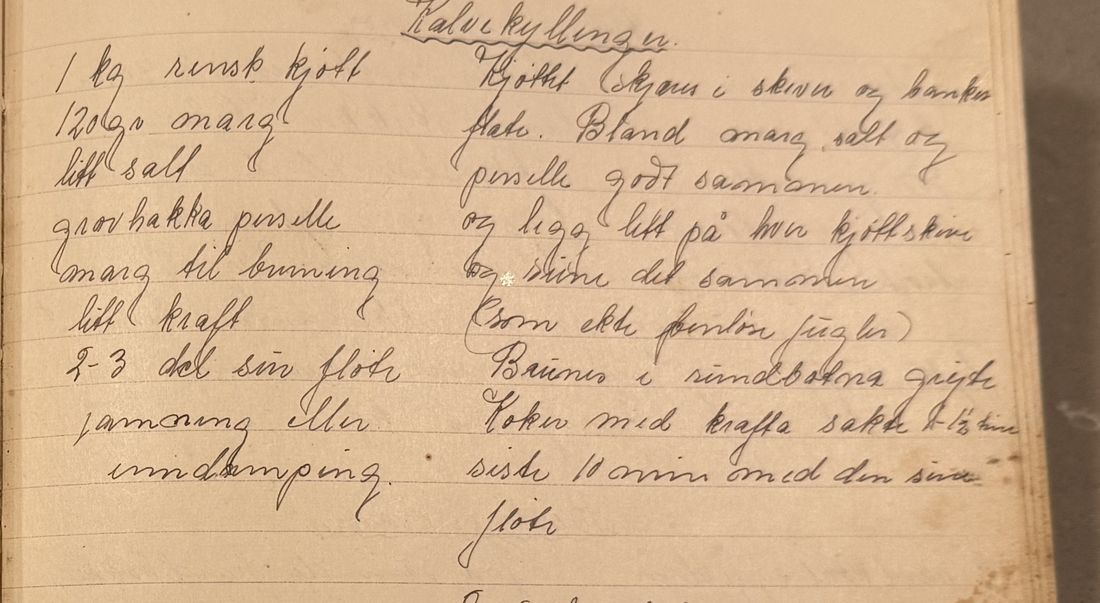 Kalvekyllinger.
1 kg rensk kjøtt
120 gr marg
litt salt
grovhakka perselle
marg til bruning
litt kraft
2-3 del sur fløte
jamning eller
inndamping.
Kjøttet skjæres i skiver og bankes
flate. Bland marg, salt og
perselle godt sammen.
og legg litt på hver kjøttskive
og surre det sammen
(som ekte benløse fugler)
Brunes i rundbotna gryte
Koker med krafta sakte 1-1½ time
siste 10 min med den sure
fløte